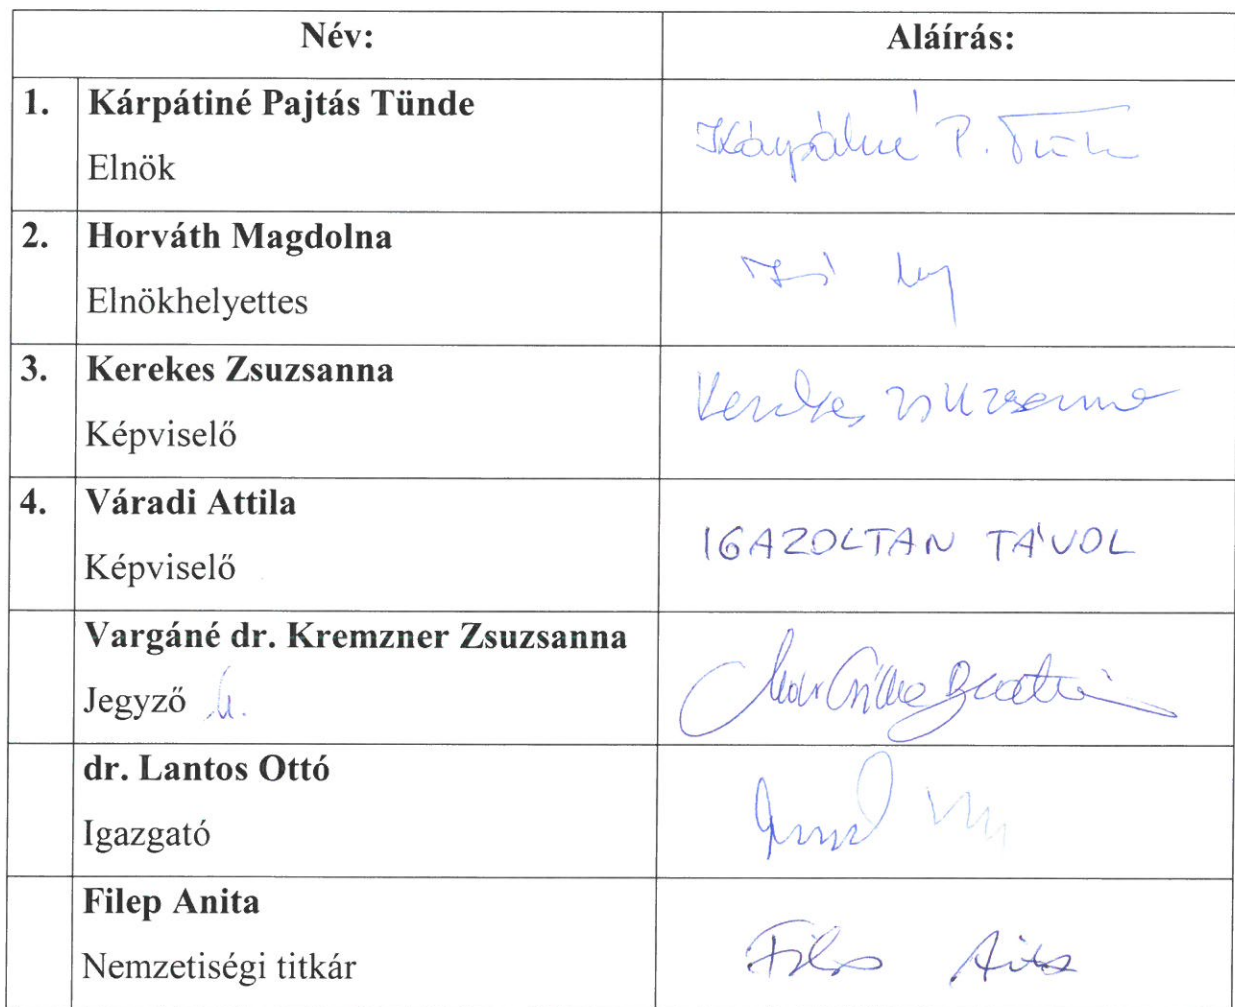 Név: Aláírás:
1. Kárpátiné Pajtás Tünde
Elnök
Kárpátiné P. Tünde
2. Horváth Magdolna
Elnökhelyettes
3. Kerekes Zsuzsanna
Képviselő
Kerekes Zsuzsanna
4. Váradi Attila
Képviselő
IGAZOLTAN TÁVOL
Vargáné dr. Kremzner Zsuzsanna
Jegyző
dr. Lantos Ottó
Igazgató
Filep Anita
Nemzetiségi titkár
Filep Anita